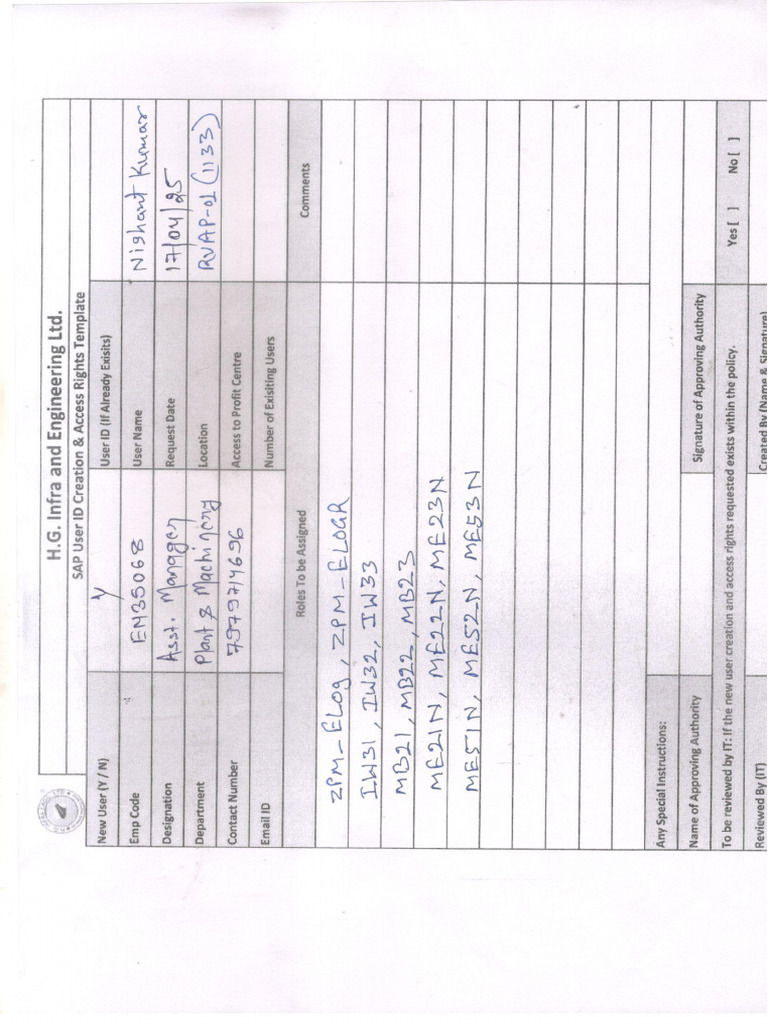 H.G. Infra and Engineering Ltd.
SAP User ID Creation & Access Rights Template
New User (Y / N) Y User ID (If Already Exisits)
Emp Code EM35068 User Name Nishant Kumar
Designation Asst. Manager Request Date 17/04/25
Department Plant & Machinery Location RVAP-01 (1133)
Contact Number 7979714696 Access to Profit Centre
Email ID Number of Exisiting Users
Roles To be Assigned Comments
ZPM-ELog, ZPM-ELOGR
IW31, IW32, IW33
MB21, MB22, MB23
ME21N, ME22N, ME23N
ME51N, ME52N, ME53N
Any Special Instructions:
Name of Approving Authority Signature of Approving Authority
To be reviewed by IT: If the new user creation and access rights requested exists within the policy. Yes [ ] No [ ]
Reviewed By (IT) Created By (Name & Signature)